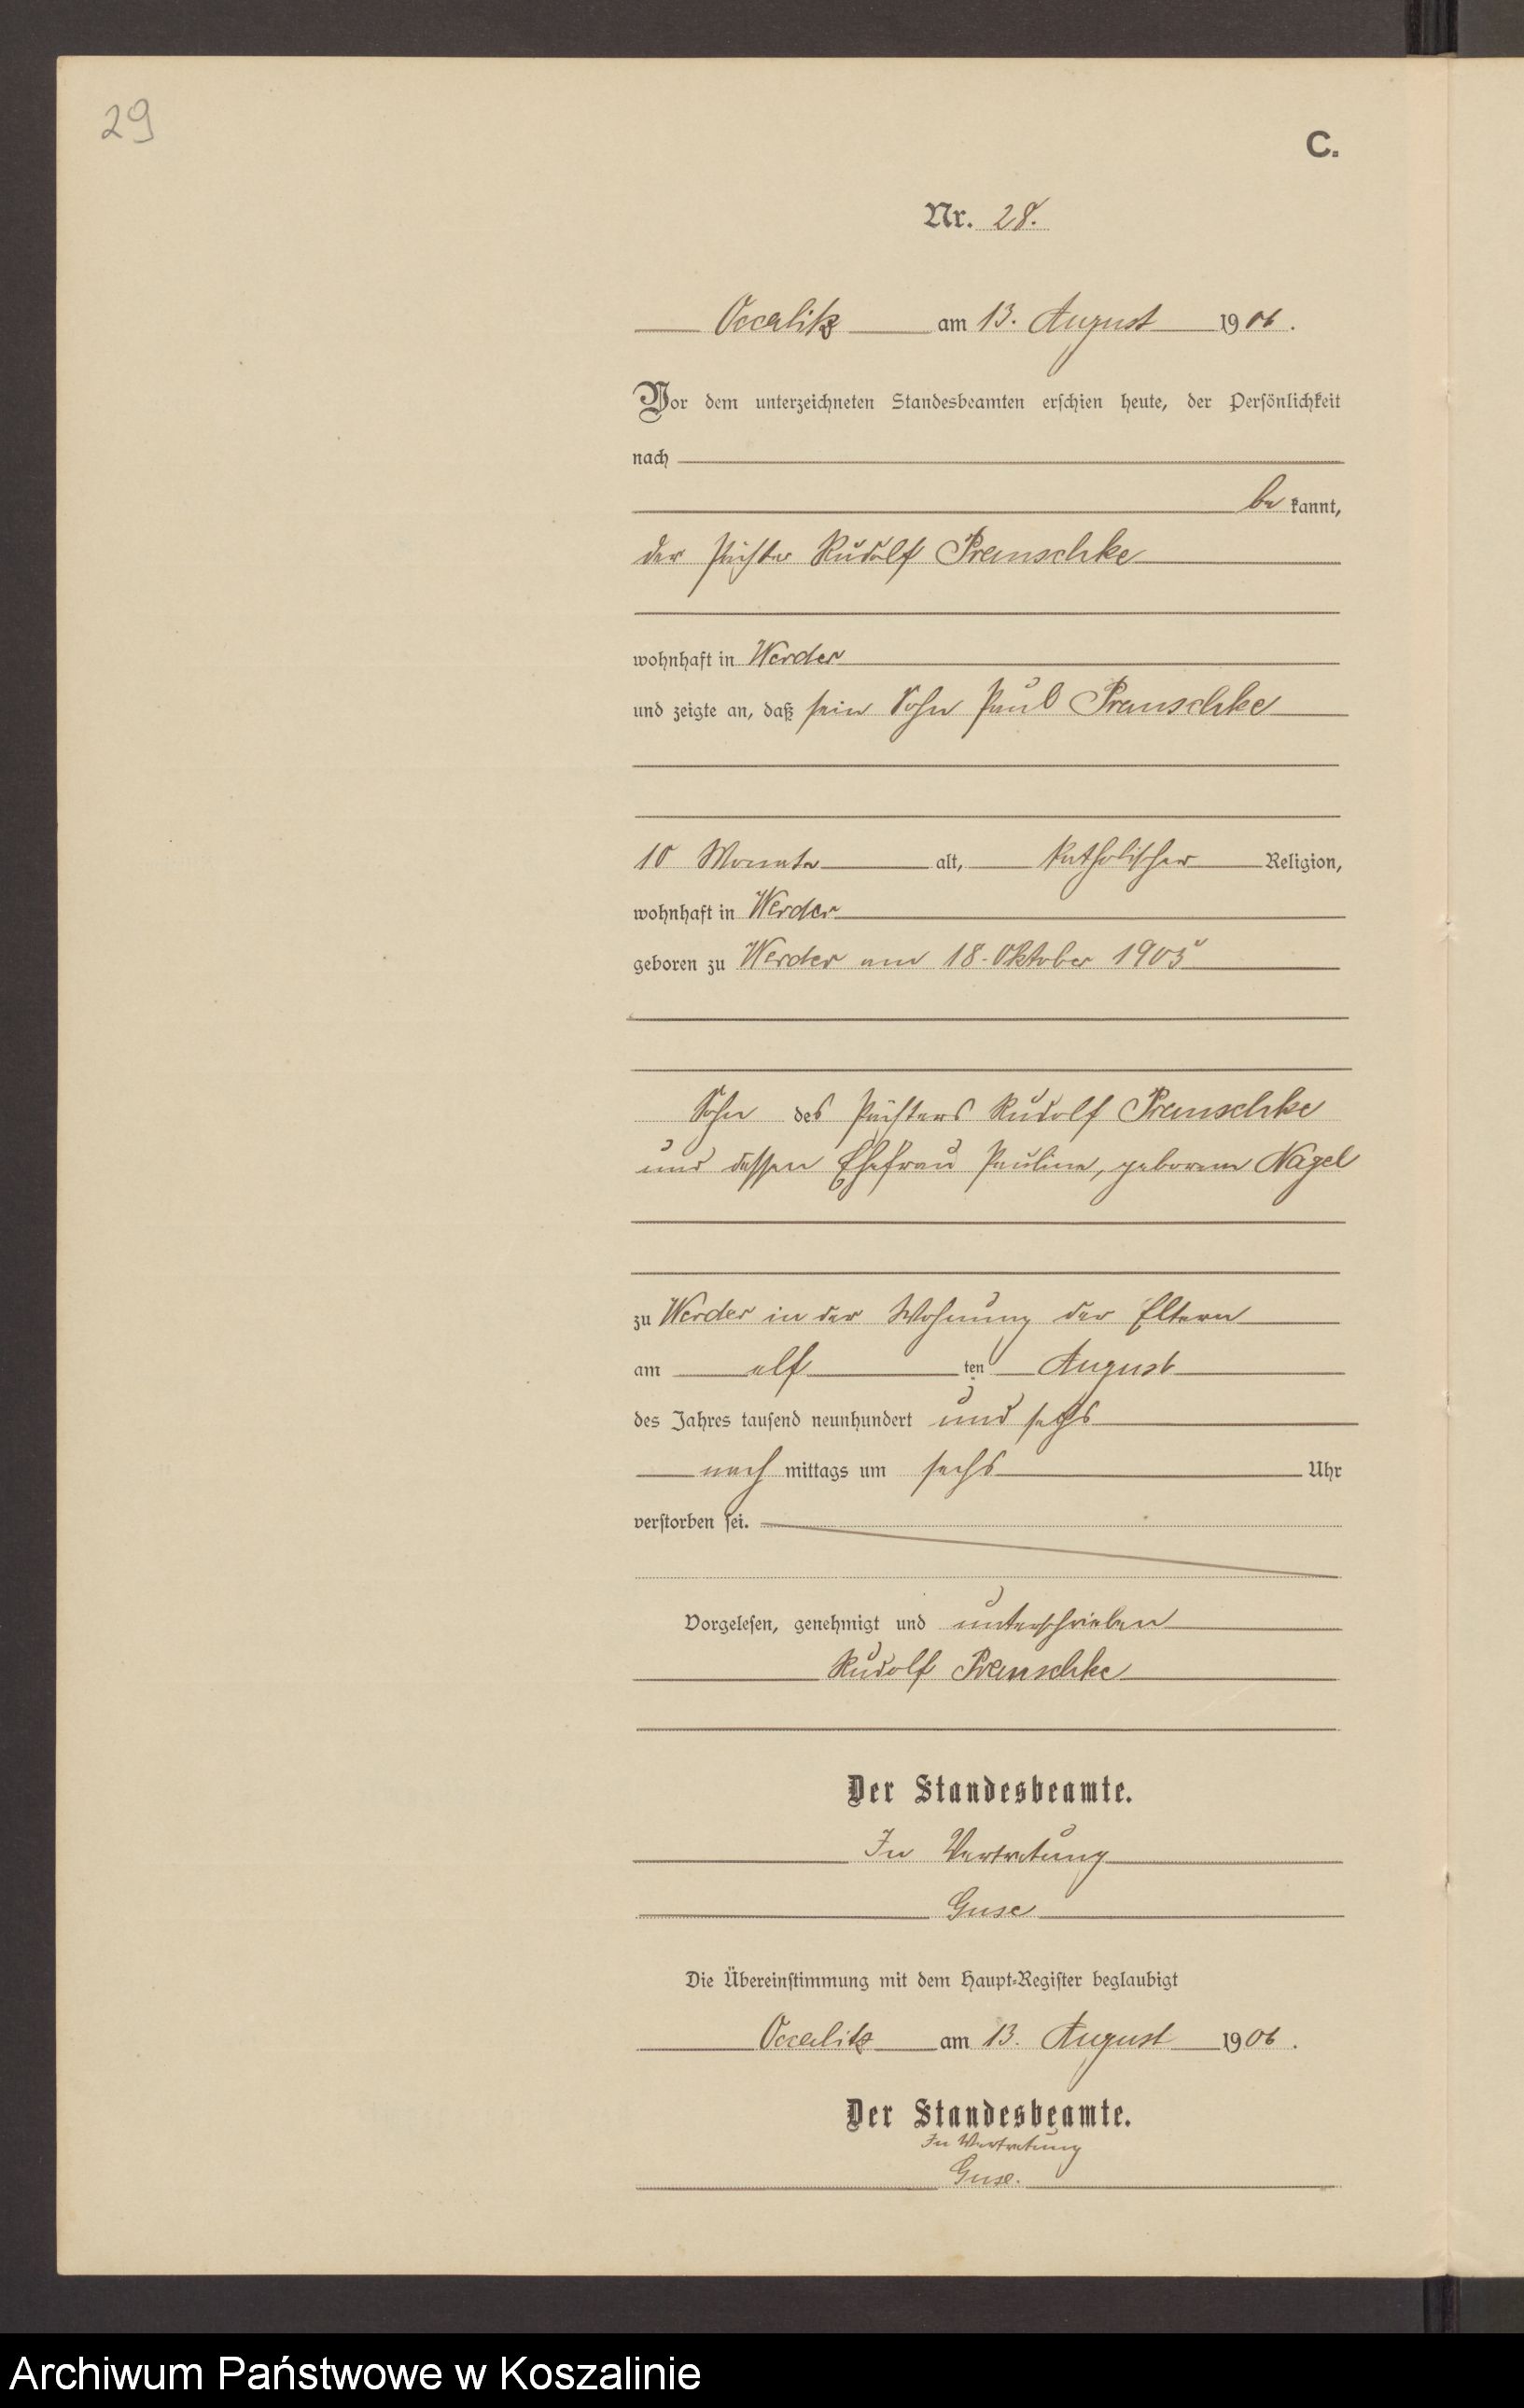 29
C.
Nr. 28.
Occalitz am 13. August 1906.
Vor dem unterzeichneten Standesbeamten erschien heute, der Persönlichkeit
nach
be kannt,
der Pächter Rudolf Pranschke
wohnhaft in Werder
und zeigte an, daß sein Sohn Paul Pranschke
10 Monate alt, katholischer Religion,
wohnhaft in Werder
geboren zu Werder am 18. Oktober 1905
Sohn des Pächters Rudolf Pranschke
und dessen Ehefrau Pauline, geborene Nagel
zu Werder in der Wohnung der Eltern
am elf ten August
des Jahres tausend neunhundert und sechs
nach mittags um sechs Uhr
verstorben sei.
Vorgelesen, genehmigt und unterschrieben
Rudolf Pranschke
Der Standesbeamte.
In Vertretung
Guse
Die Übereinstimmung mit dem Haupt-Register beglaubigt
Occalitz am 13. August 1906.
Der Standesbeamte.
In Vertretung
Guse.
Archiwum Państwowe w Koszalinie